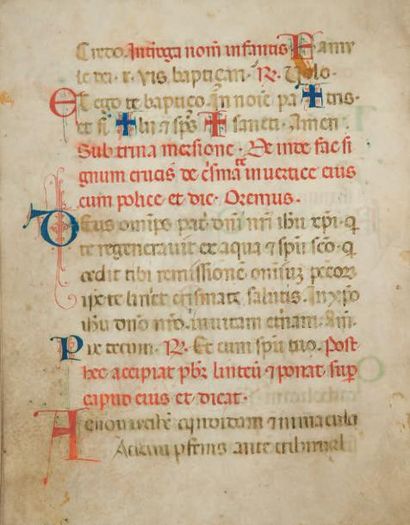 Credo. Interroga nom infantis Famu
le dei. N. vis baptizari. R. Volo.
Et ego te baptizo. In noie pa ✚ tris.
et fi ✚ lii et sps ✚ sancti. Amen.
Sub trina mersione. De inde fac si
gnum crucis de crismate in vertice eius
cum police et dic. Oremus.
Deus omips pat dni nri ihu xpi. q
te regeneravit ex aqua et spu sco. q
dedit tibi remissione omium peccor
ipse te liniet crismate salutis. In xpo
ihu dno nro. in vitam eternam. Am.
Pax tecum. R. Et cum spu tuo. Post
hec accipiat pbr linteu et ponat super
caput eius et dicat.
Accipe vestem candidam et immacula